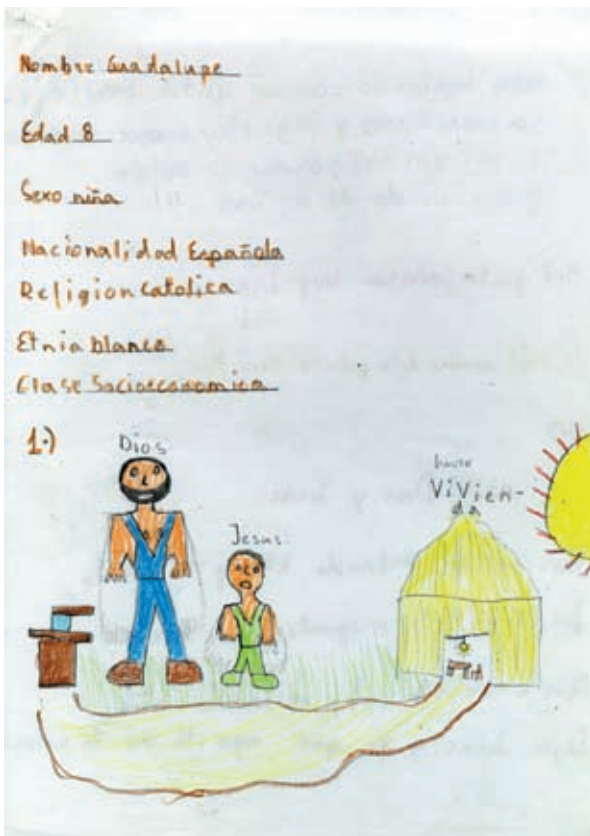 Nombre Guadalupe
Edad 8
Sexo niña
Nacionalidad Española
Religion catolica
Etnia blanco
Clase Socioeconomica
1.)
Dios
Jesus
ViVien-
da